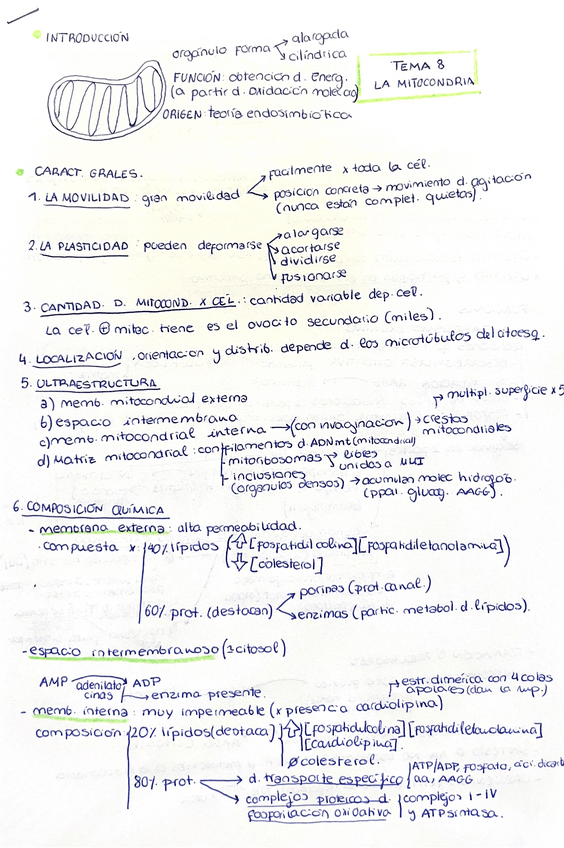 INTRODUCCIÓN
orgánulo forma → alargada
→ cilíndrica
TEMA 8
LA MITOCONDRIA
FUNCIÓN: obtención d. energ.
(a partir d. oxidación molec ag)
ORIGEN: teoría endosimbiótica
CARACT. GRALES.
1. LA MOVILIDAD: gran movilidad → facilmente x toda la cél.
→ posición concreta → movimiento d. agitación
(nunca están complet. quietas).
2. LA PLASTICIDAD: pueden deformarse → alargarse
→ acortarse
→ dividirse
→ fusionarse
3. CANTIDAD. D. MITOCOND. X CEL.: cantidad variable dep. cel.
La cel. ⊕ mitoc. tiene es el ovocito secundario (miles).
4. LOCALIZACIÓN, orientación y distrib. depende d. los microtúbulos del citoesq.
5. ULTRAESTRUCTURA
a) memb. mitocondrial externa
b) espacio intermembrana
c) memb. mitocondrial interna → (con invaginacion) → crestas mitocondriales
→ multipl. superficie x 5
d) Matriz mitocondrial: con filamentos d. ADNmt (mitocondrial)
- mitoribosomas → libres
unidos a MMI
- inclusiones
(organulos densos) → acumulan molec hidrofob.
(ppal. glucog. AAGG).
6. COMPOSICIÓN QUÍMICA
- membrana externa: alta permeabilidad.
· compuesta x 40% lípidos (⇧ [fosfatidilcolina] [fosfatidiletanolamina])
⇩ [colesterol]
60% prot. (destacan) → porinas (prot. canal.)
→ enzimas (partic. metabol. d. lípidos).
- espacio intermembranoso (≈ citosol)
AMP → ADP
adenilato cinas → enzima presente.
→ estr. dimérica con 4 colas
apolares (dan la imp.)
- memb. interna: muy impermeable (x presencia cardiolipina)
composición 20% lípidos (destaca) ⇧ [fosfatidilcolina] [fosfatidiletanolamina]
[cardiolipina].
ø colesterol.
80% prot. → d. transporte específico ATP/ADP, fosfato, aci. dicarb
aa, AAGG
→ complejos proteicos d. complejos I-IV
fosforilación oxidativa y ATP sintasa.